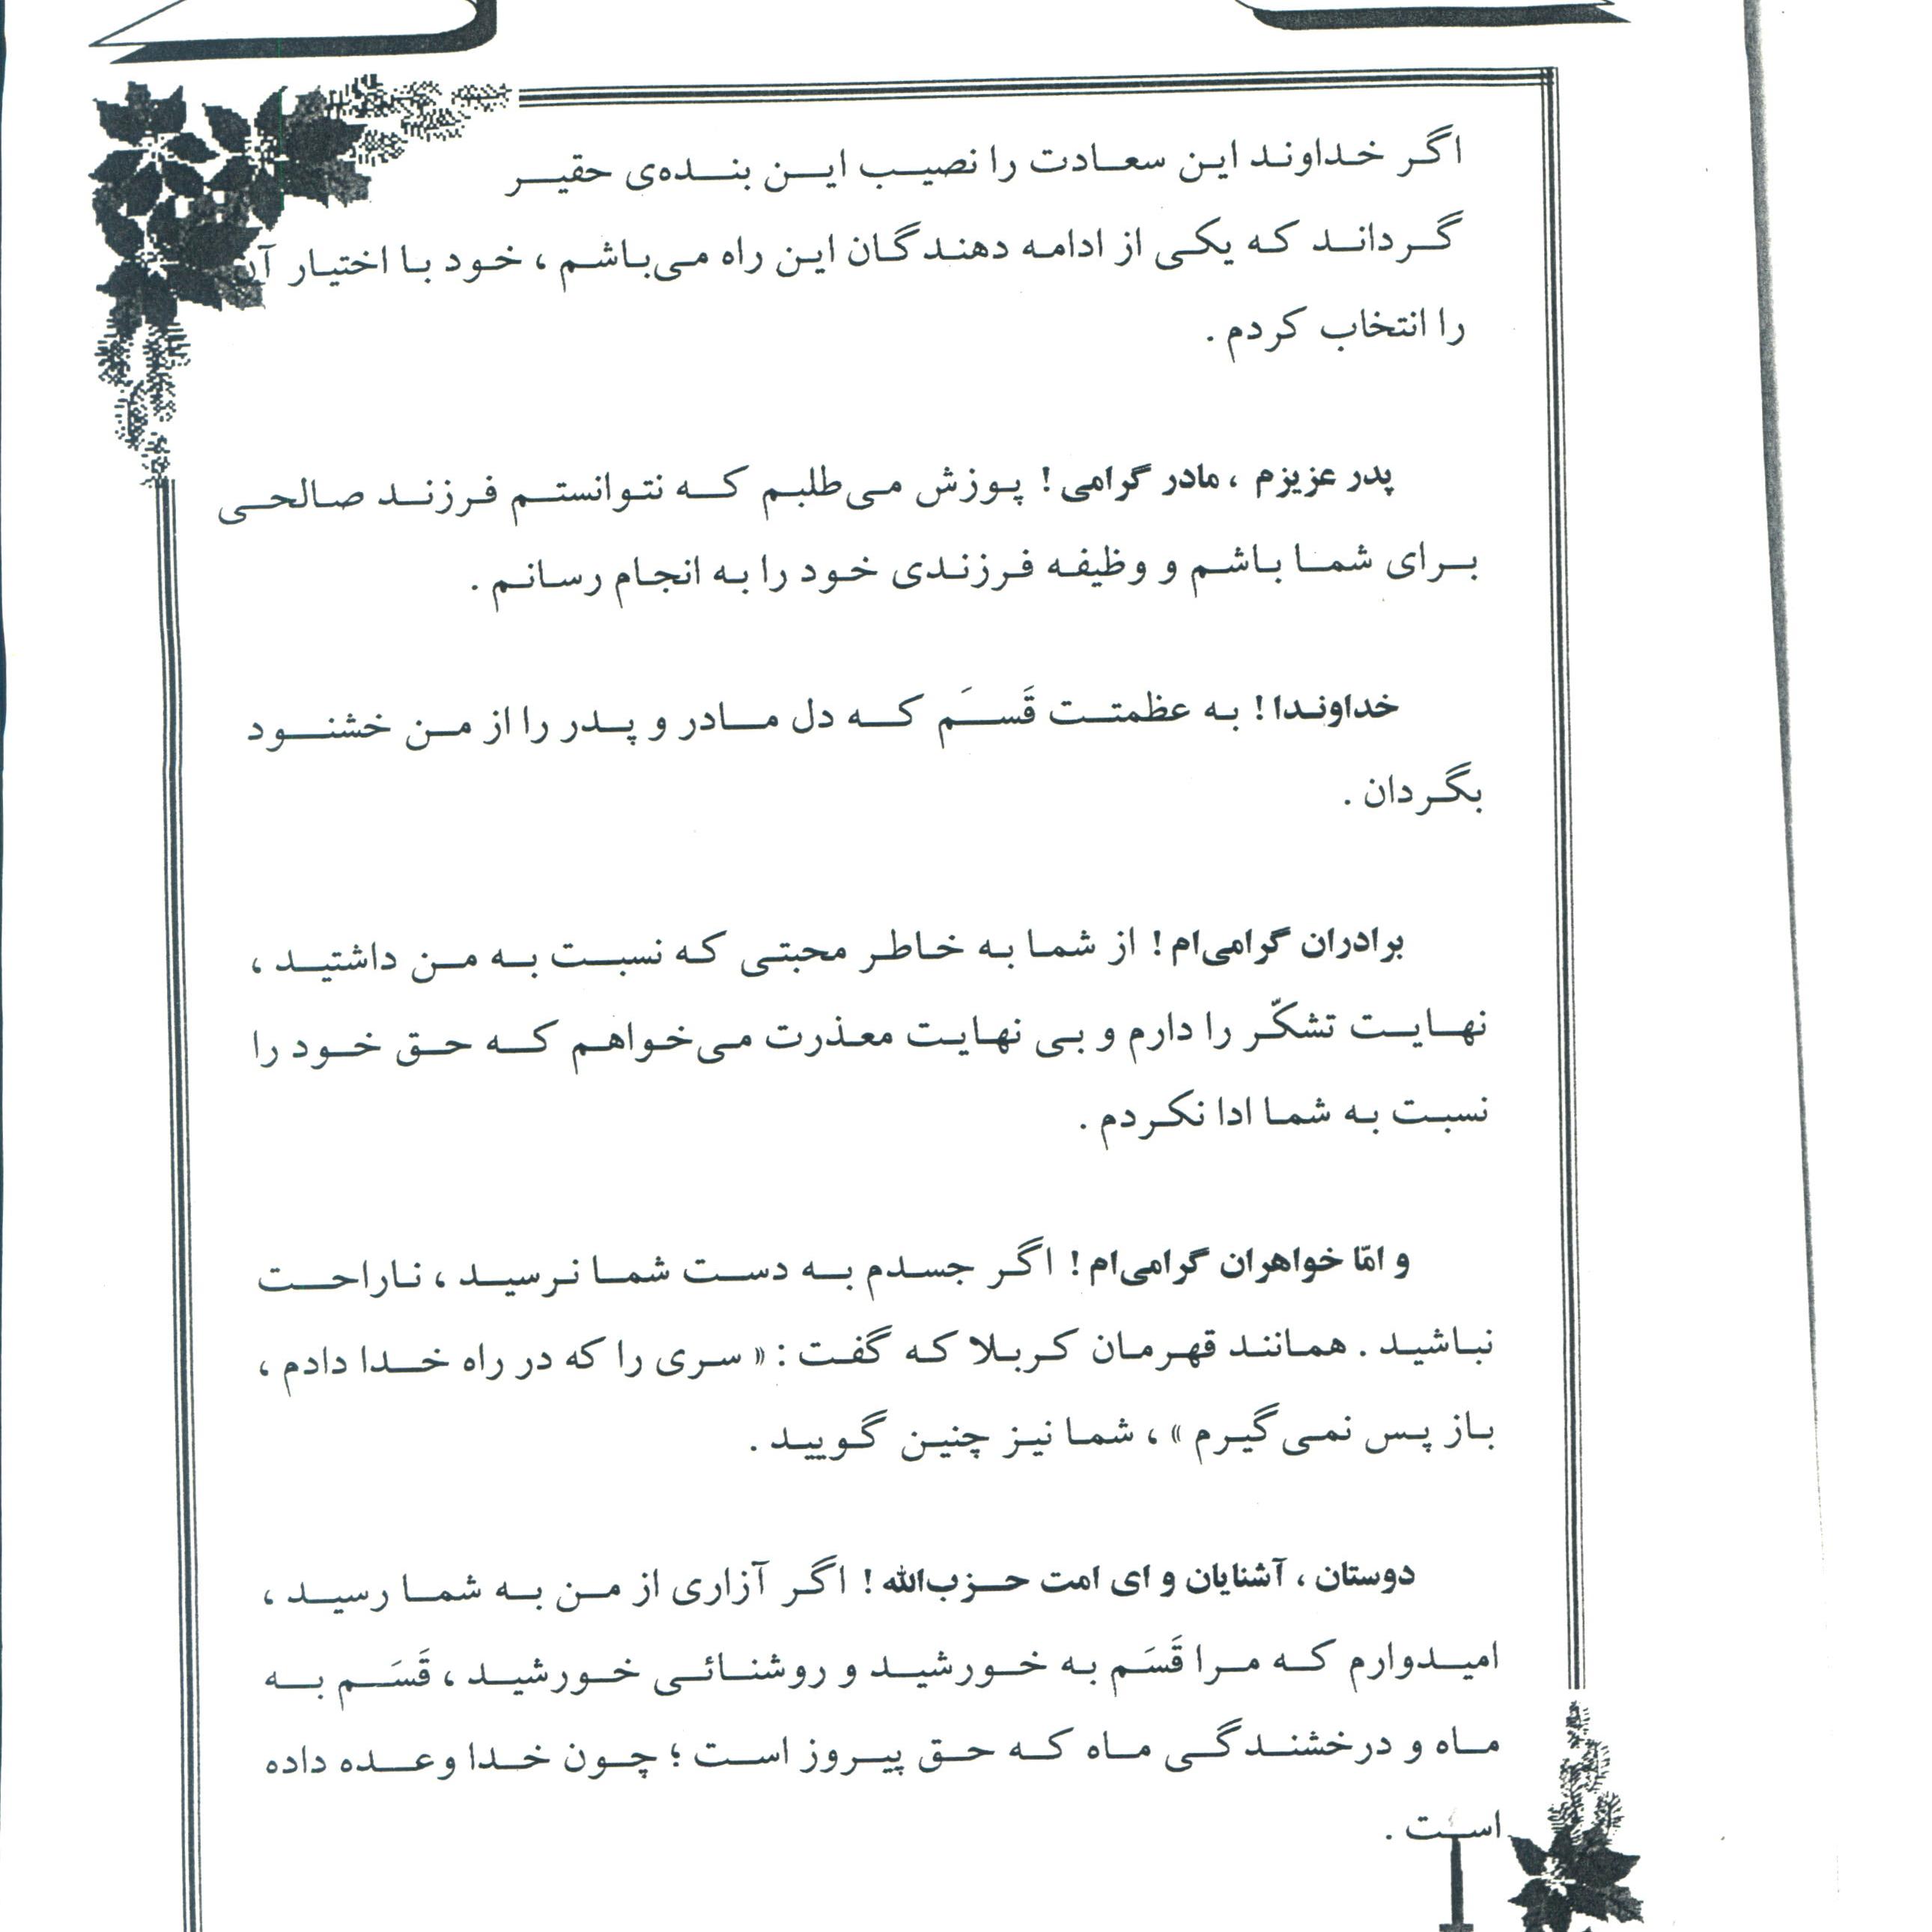 اگر خداوند این سعادت را نصیب این بنده‌ی حقیر
گرداند که یکی از ادامه دهندگان این راه می‌باشم ، خود با اختیار آن
را انتخاب کردم .
پدر عزیزم ، مادر گرامی ! پوزش می‌طلبم که نتوانستم فرزند صالحی
برای شما باشم و وظیفه فرزندی خود را به انجام رسانم .
خداوندا ! به عظمتت قَسَم که دل مادر و پدر را از من خشنود
بگردان .
برادران گرامی‌ام ! از شما به خاطر محبتی که نسبت به من داشتید ،
نهایت تشکّر را دارم و بی نهایت معذرت می‌خواهم که حق خود را
نسبت به شما ادا نکردم .
و امّا خواهران گرامی‌ام ! اگر جسدم به دست شما نرسید ، ناراحت
نباشید . همانند قهرمان کربلا که گفت : « سری را که در راه خدا دادم ،
باز پس نمی‌گیرم » ، شما نیز چنین گویید .
دوستان ، آشنایان و ای امت حزب‌الله ! اگر آزاری از من به شما رسید ،
امیدوارم که مرا قَسَم به خورشید و روشنائی خورشید ، قَسَم به
ماه و درخشندگی ماه که حق پیروز است ؛ چون خدا وعده داده
است .